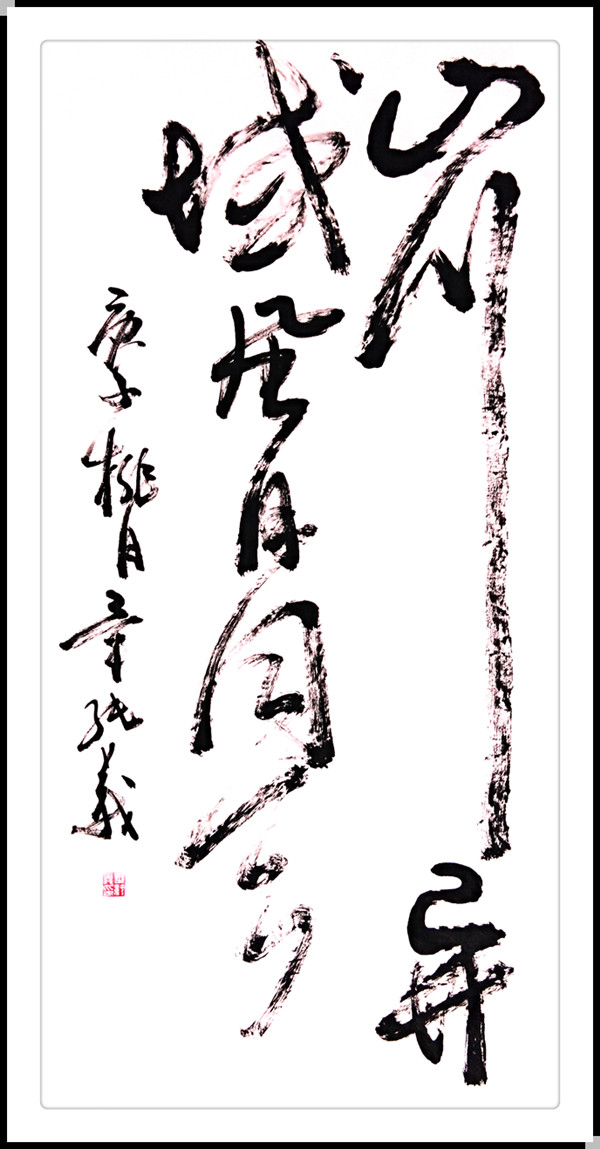 山川异
域風月同天
庚子桃月章纯義